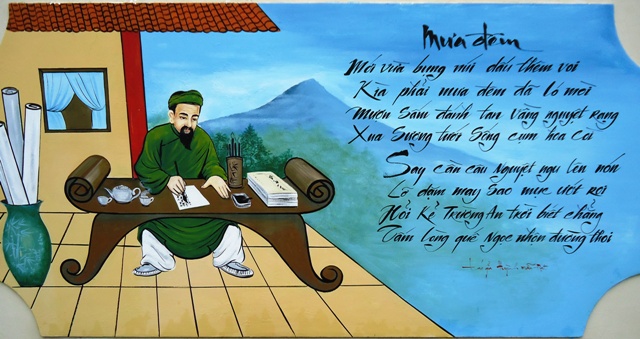 Mưa đêm
Mới vừa bụng núi dấu thềm voi
Kịa phải mưa đêm đã ló mòi
Mượn Sấm đánh tan Vầng nguyệt rạng
Xua Sương tưới Sống cụm hoa Còi
Say cần câu Nguyệt ngư lên nón
Lỡ dặm mây Sao mực ướt
Hỏi kẻ Trường An trời biết chẳng
Tấm lòng quê Ngọc nhện đường thoi